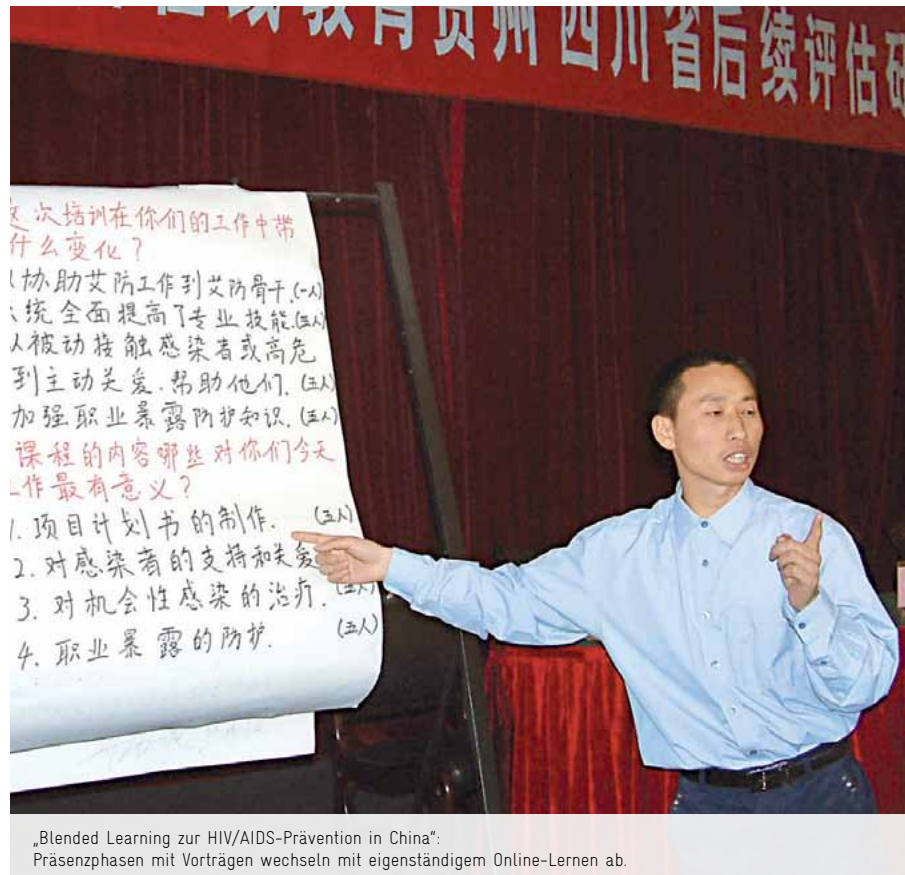 教育贵州 四川省后续评估研
这次培训在你们的工作中带
什么变化?
从协助艾防工作到艾防骨干.(一人)
系统全面提高了专业技能.(五人)
从被动接触感染者或高危
到主动关爱.帮助他们.(五人)
加强职业暴露防护知识.(五人)
课程的内容哪些对你们今天
工作最有意义?
1. 项目计划书的制作. (五人)
2. 对感染者的支持和关爱
3. 对机会性感染的治疗. (五人)
4. 职业暴露的防护. (五人)
„Blended Learning zur HIV/AIDS-Prävention in China“:
Präsenzphasen mit Vorträgen wechseln mit eigenständigem Online-Lernen ab.